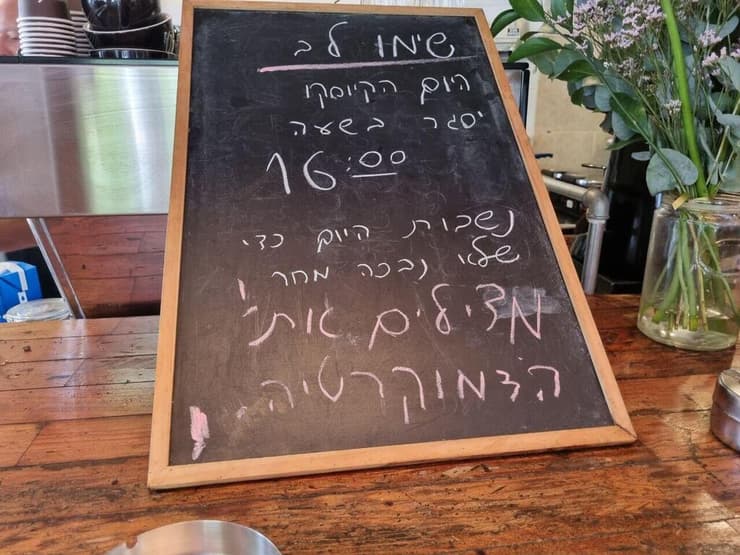 שימו לב
היום הקיוסקו
יסגר בשעה
16:00
נשבות היום כדי
שלא נבכה מחר
מצילים את
הדמוקרטיה